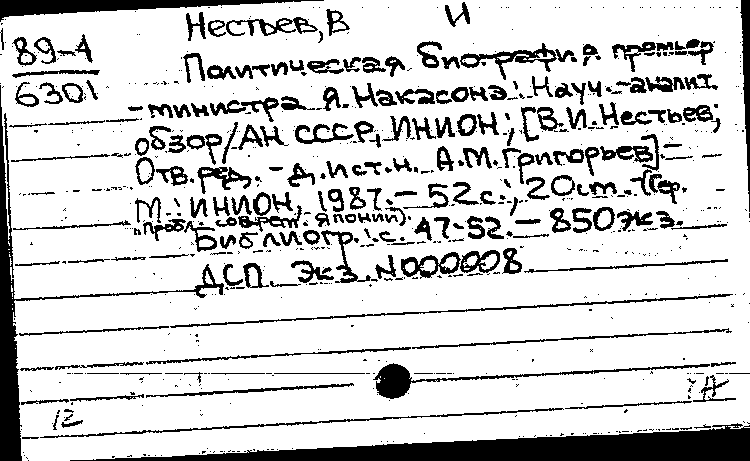 Нестьев, В И
89-4
6301
Политическая биография премьер
-министра Я. Накасона: Науч.-аналит.
обзор/АН СССР, ИНИОН; [В.И.Нестьев;
Отв.ред. - д.ист.н. А.М.Григорьев].-
М.: ИНИОН, 1987. - 52с.; 20см. -(Сер.
"Пробл. соврем. Японии).
Библиогр.: с. 47-52. - 850экз.
ДСП. Экз. N000008.
12